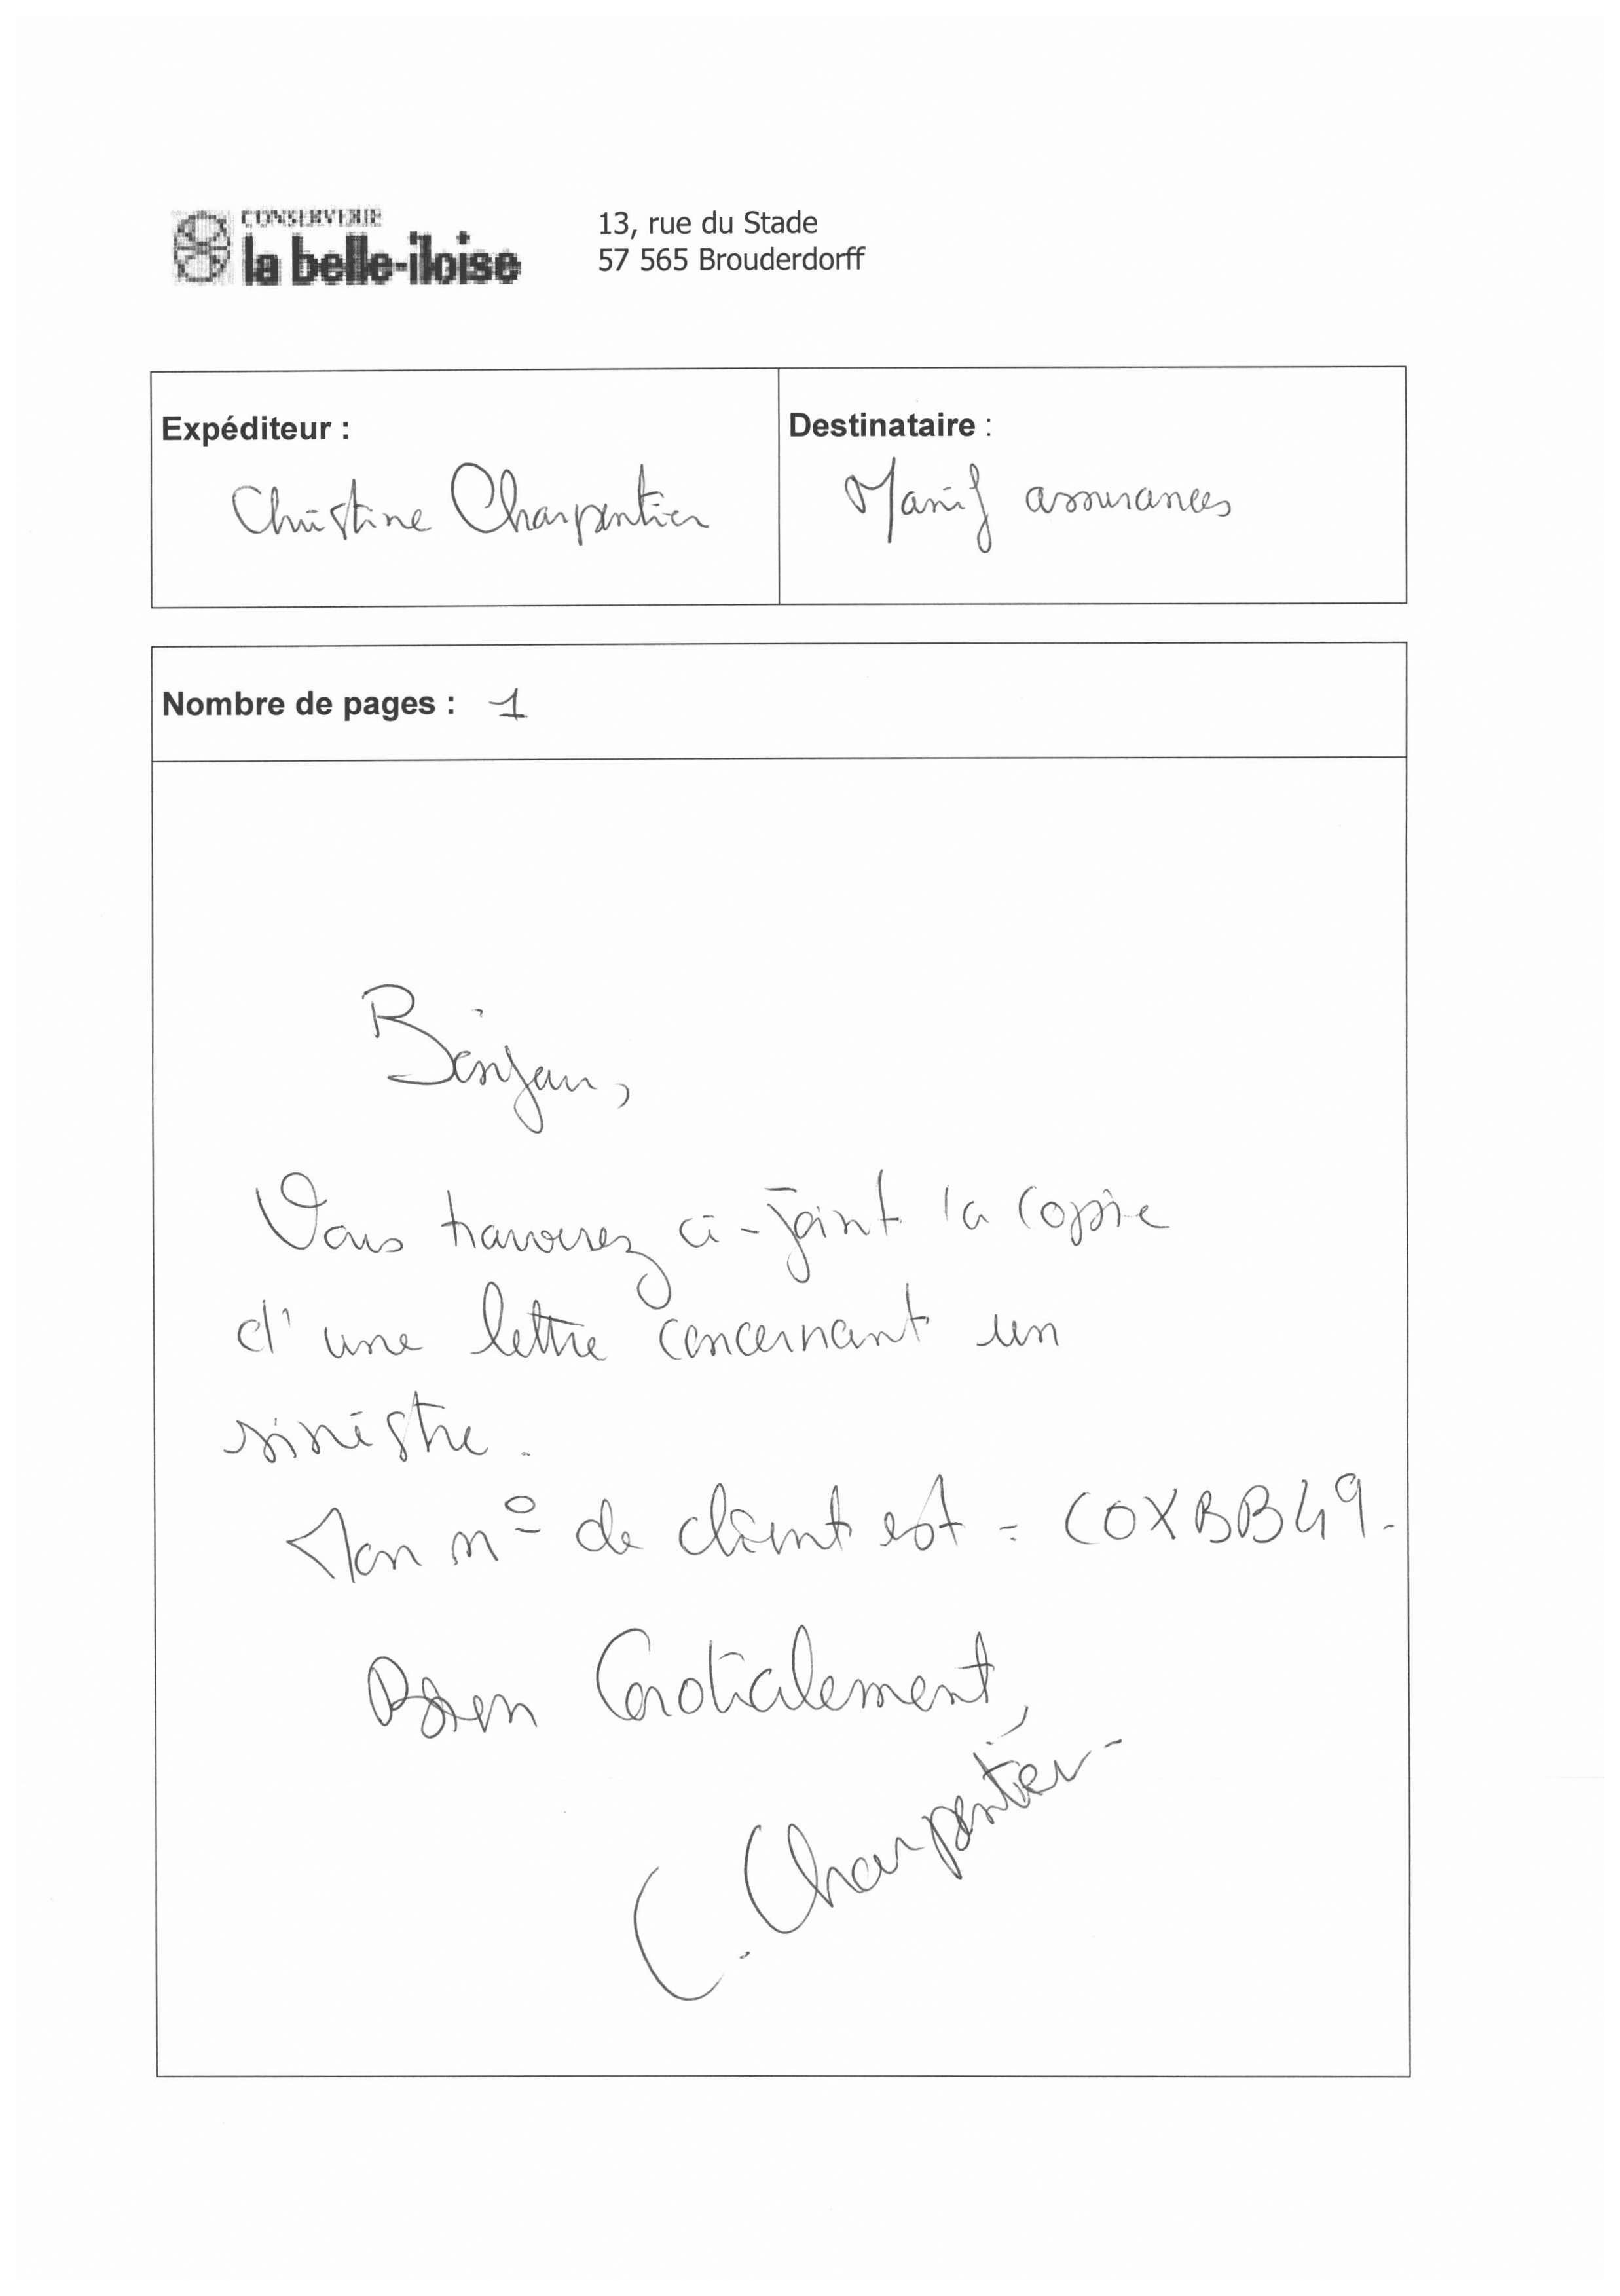 CONSERVERIE
la belle-iloise
13, rue du Stade
57 565 Brouderdorff
Expéditeur :
Christine Charpentier
Destinataire :
Manif assurances
Nombre de pages : 1
Bonjour,
Vous trouverez ci-joint la copie
d'une lettre concernant un
sinistre.
Mon n° de client est : COXBB49.
Bien Cordialement,
C. Charpentier